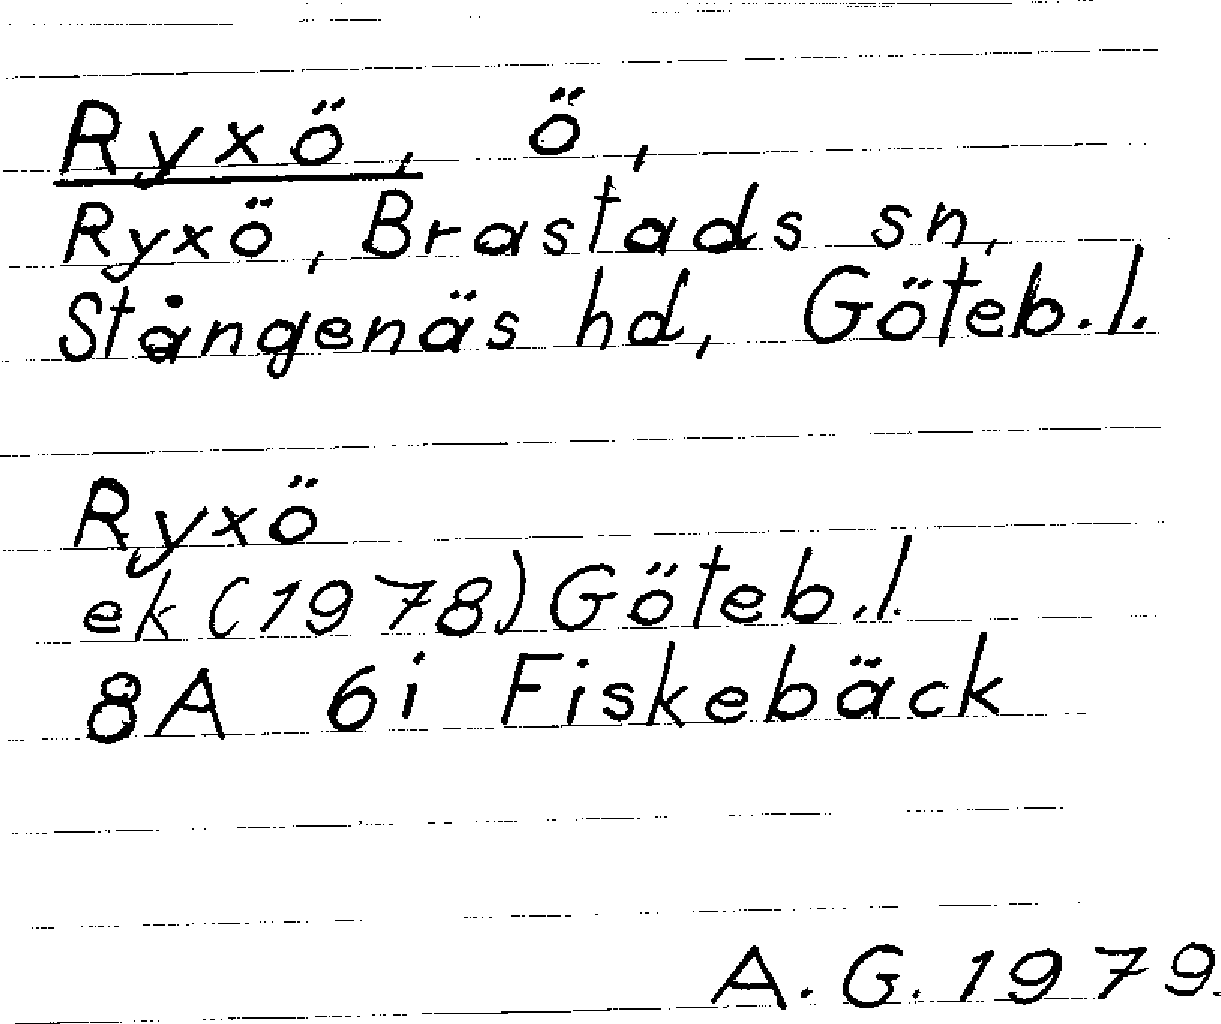 Ryxö, ö,
Ryxö, Brastads sn,
Stångenäs hd, Göteb.l.
Ryxö
ek (1978) Göteb.l.
8A 6i Fiskebäck
A.G. 1979.